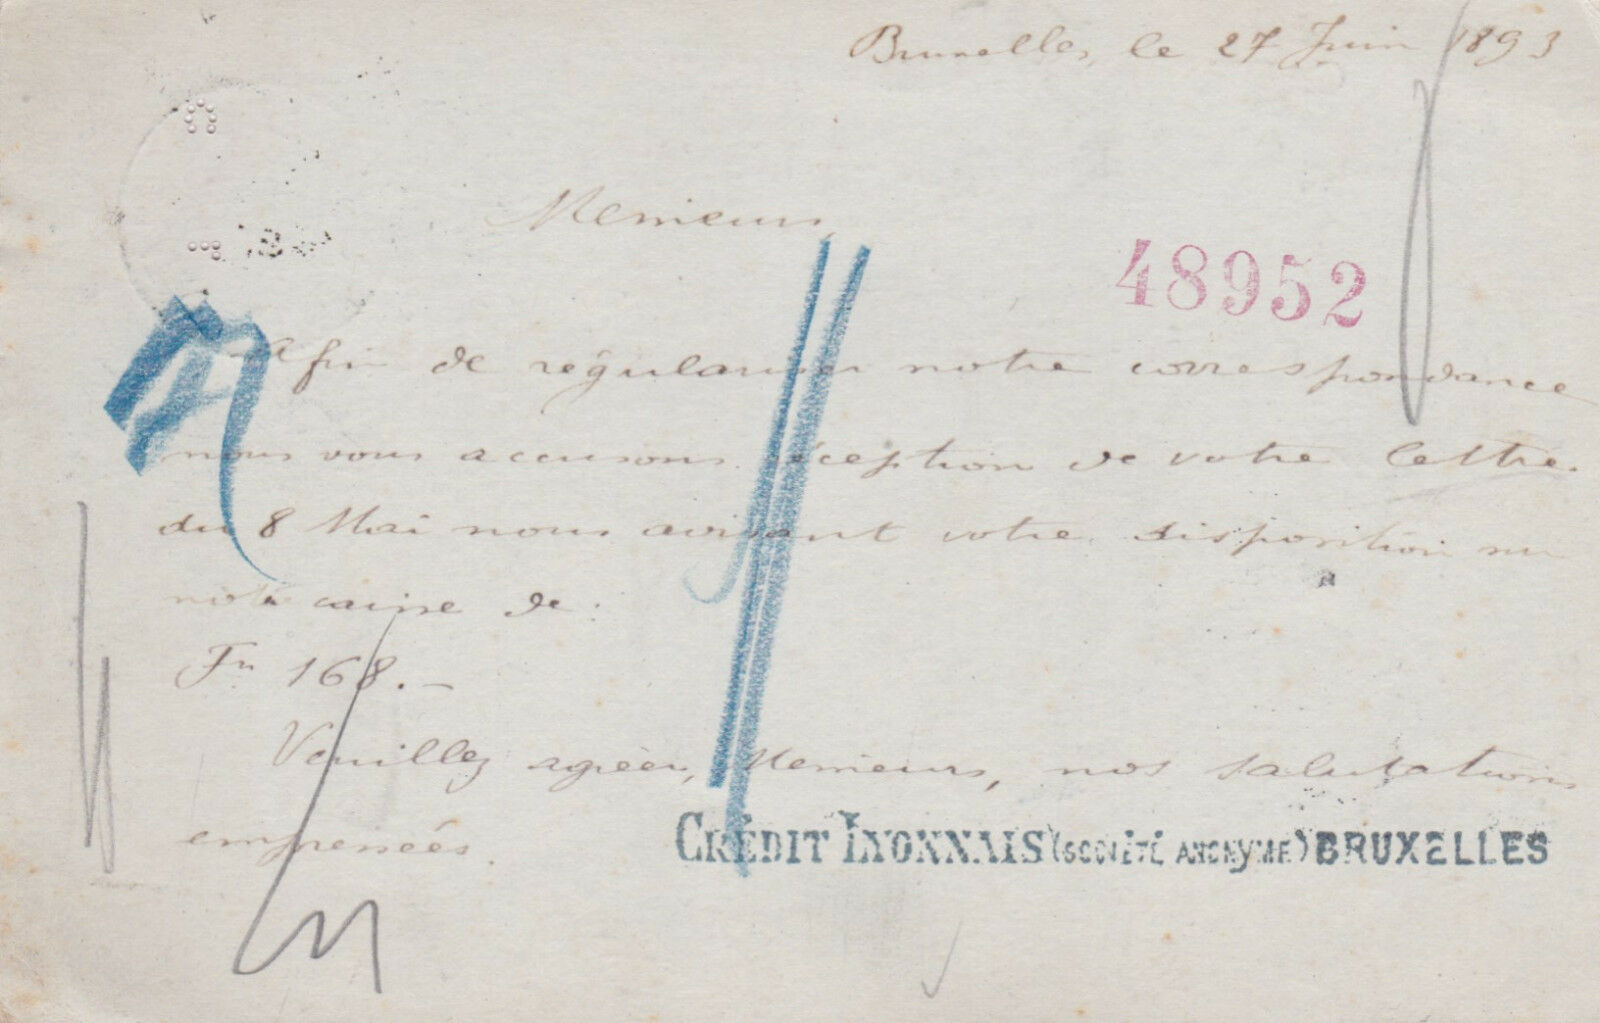 Bruxelles, le 27 Juin 1893
Messieurs,
48952
Afin de régulariser notre correspondance
nous vous accusons réception de votre lettre
du 8 Mai nous avisant votre disposition sur
notre caisse de :
Frs 168.-
Veuillez agréer, Messieurs, nos salutations
empressées.
CRÉDIT LYONNAIS (SOCIÉTÉ ANONYME) BRUXELLES